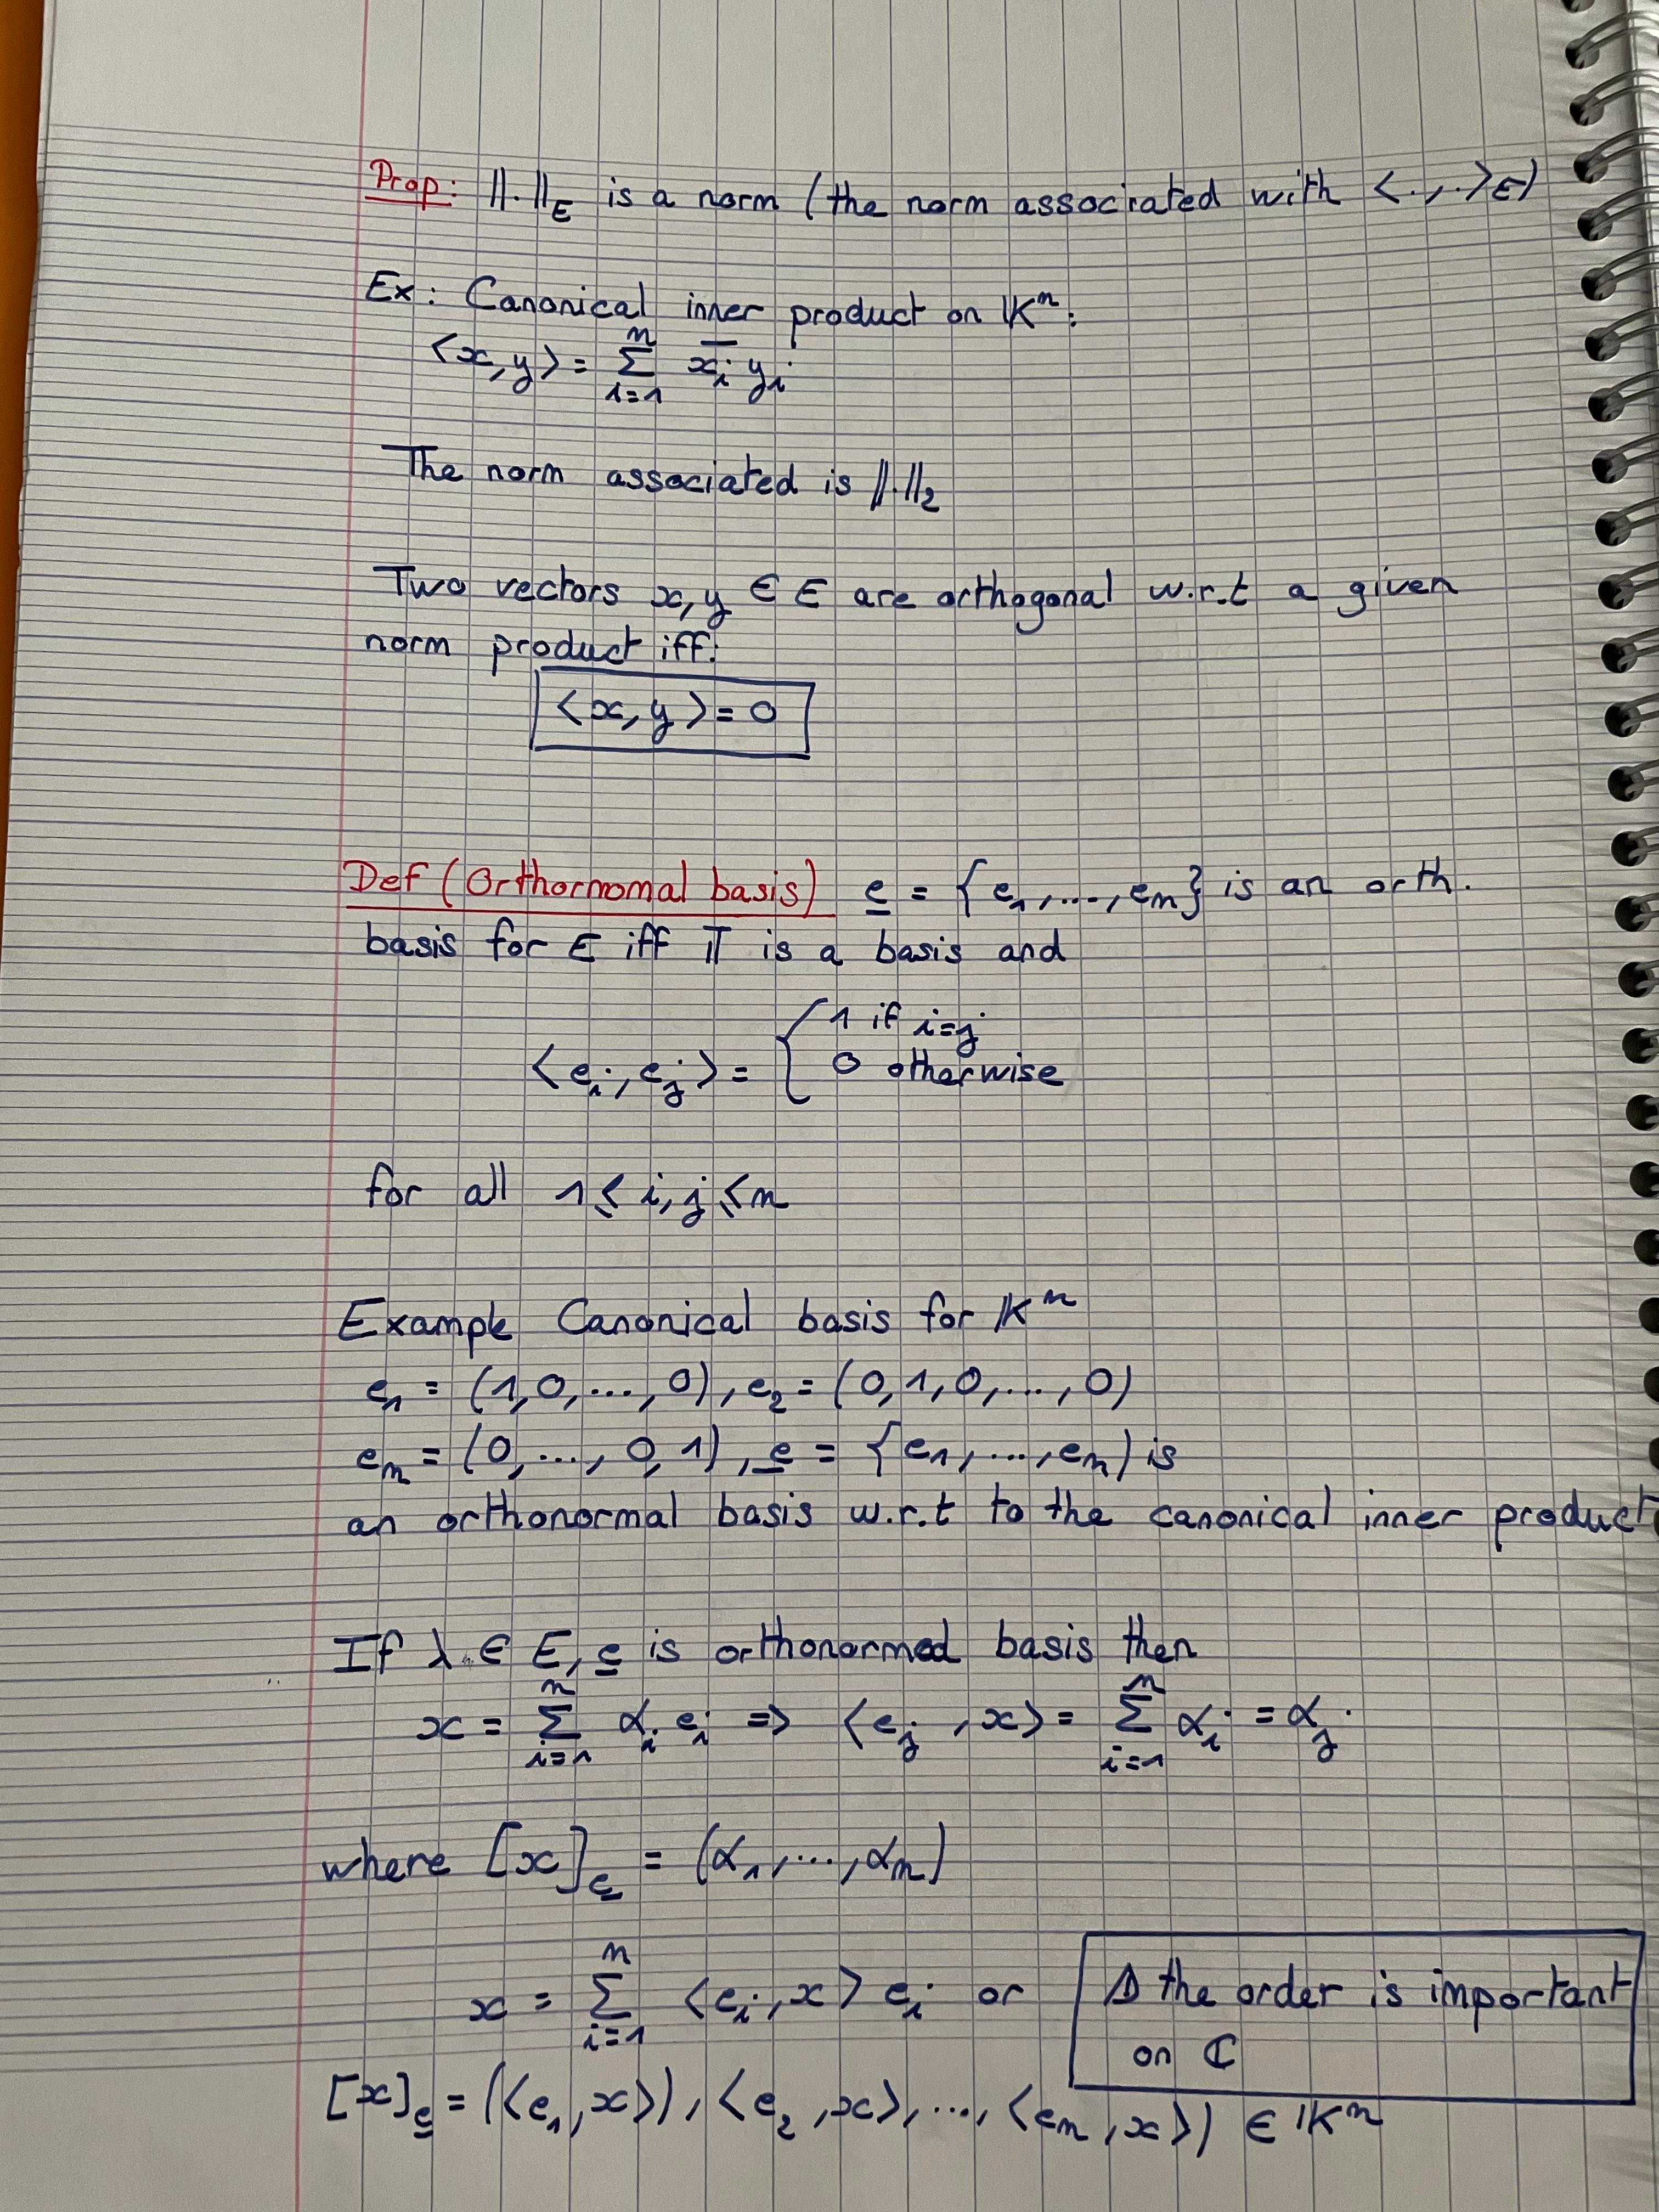 Prop: ||.||_E is a norm (the norm associated with <.,.>_E)
Ex: Canonical inner product on 𝕂^n:
<x,y> = Σ_{i=1}^{n} x̄_i y_i
The norm associated is ||.||_2
Two vectors x,y ∈ E are orthogonal w.r.t a given
norm product iff:
<x,y> = 0
Def (Orthornomal basis) e = {e_1,...,e_n} is an orth.
basis for E iff IT is a basis and
<e_i, e_j> = { 1 if i=j
0 otherwise
for all 1 ≤ i, j ≤ n
Example Canonical basis for 𝕂^n
e_1 = (1,0,...,0), e_2 = (0,1,0,...,0)
e_n = (0,...,0,1), e = {e_1,...,e_n) is
an orthonormal basis w.r.t to the canonical inner product
If λ ∈ E, e is orthonormed basis then
x = Σ_{i=1}^{n} α_i e_i => <e_j, x> = Σ_{i=1}^{n} α_i = α_j
where [x]_e = (α_1,...,α_n)
x = Σ_{i=1}^{n} <e_i, x> e_i or
⚠ the order is important
on ℂ
[x]_e = (<e_1,x>), <e_2,x>,..., <e_n,x>) ∈ 𝕂^n